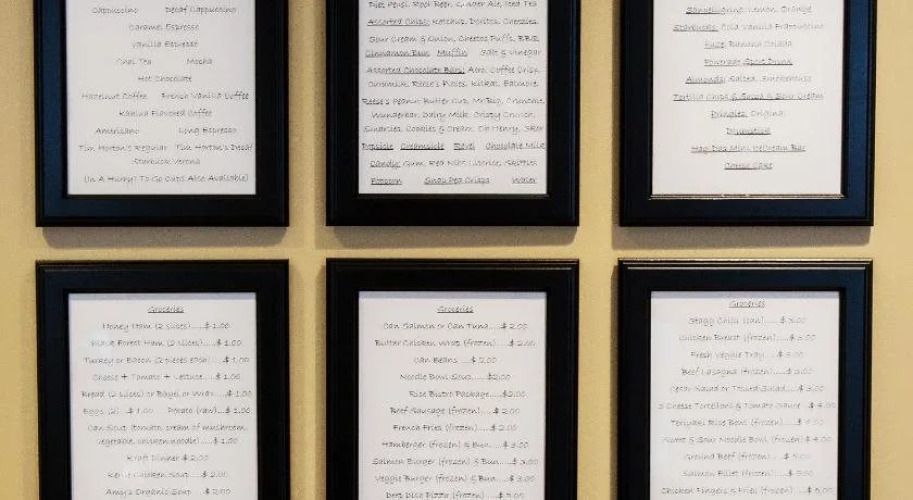 Cappuccino Decaf Cappuccino
Caramel Espresso
Vanilla Espresso
Chai Tea Mocha
Hot Chocolate
Hazelnut Coffee French Vanilla Coffee
Kahlua Flavored Coffee
Americano Long Espresso
Tim Horton's Regular Tim Horton's Decaf
Starbucks Verona
(In A Hurry? To Go Cups Also Available)
Diet Pepsi, Root Beer, Ginger Ale, Iced Tea
Assorted Chips: Ketchup, Doritos, Cheezies,
Sour Cream & Onion, Cheetos Puffs, BBQ,
Cinnamon Bun Muffin Salt & Vinegar
Assorted Chocolate Bars: Aero, Coffee Crisp,
Reese's Pieces, Kitkat, Eatmore,
Reese's Peanut Butter Cup, Mr Big, Crunchie,
Wunderbar, Dairy Milk, Crispy Crunch,
Smarties, Cookies & Cream, Oh Henry, Skor
Popsicle Creamsicle Revel Chocolate Milk
Candy: Gum, Red Nibs, Licorice, Skittles
Popcorn Snap Pea Crisps Water
Lemon, Orange
Starbucks: Cold Vanilla Frappuccino
Fuze: Banana Colada
Powerade Sport Drink
Almonds: Salted, Smokehouse
Tortilla Chips & Salsa & Sour Cream
Pringles: Original
Drumstick
Hag Das Mini IceCream Bar
Classic Cake
Groceries
Honey Ham (2 slices).....$ 1.00
Black Forest Ham (2 slices).....$ 1.00
Turkey or Bacon (2 pieces each)....$ 1.00
Cheese + Tomato + Lettuce....$ 1.00
Bread (2 slices) or Bagel or Wrap....$ 1.00
Eggs (2)...$ 1.00 Potato (raw)...$ 1.00
Can Soup (tomato, cream of mushroom,
vegetable, chicken noodle).....$ 1.00
Kraft Dinner $ 2.00
Chicken Soup.....$ 2.00
Amy's Organic Soup....$ 2.00
Groceries
Can Salmon or Can Tuna....$ 2.00
Butter Chicken Wrap (frozen)....$ 2.00
Can Beans....$ 2.00
Noodle Bowl Soup......$2.00
Rice Bistro Package...$2.00
Beef Sausage (frozen)....$ 2.00
French Fries (frozen)....$ 2.00
Hamberger (frozen) & Bun....$ 3.00
Salmon Burger (frozen) & Bun....$ 3.00
Veggie Burger (frozen) & Bun....$ 3.00
Deep Dish Pizza (frozen)....$ 3.00
Groceries
Stagg Chili (can).....$ 3.00
Chicken Breast (frozen).....$
Fresh Veggie Tray....$
Beef Lasagna (frozen)....$
Cesar Salad or Tossed Salad....$
3 Cheese Tortellini & Tomato Sauce...$ 4.00
Teriyaki Rice Bowl (frozen)....$ 4.00
Sweet & Sour Noodle Bowl (frozen) $ 4.00
Ground Beef (frozen)....$
Salmon Fillet (frozen)....$
Chicken Fingers & Fries (frozen)....$